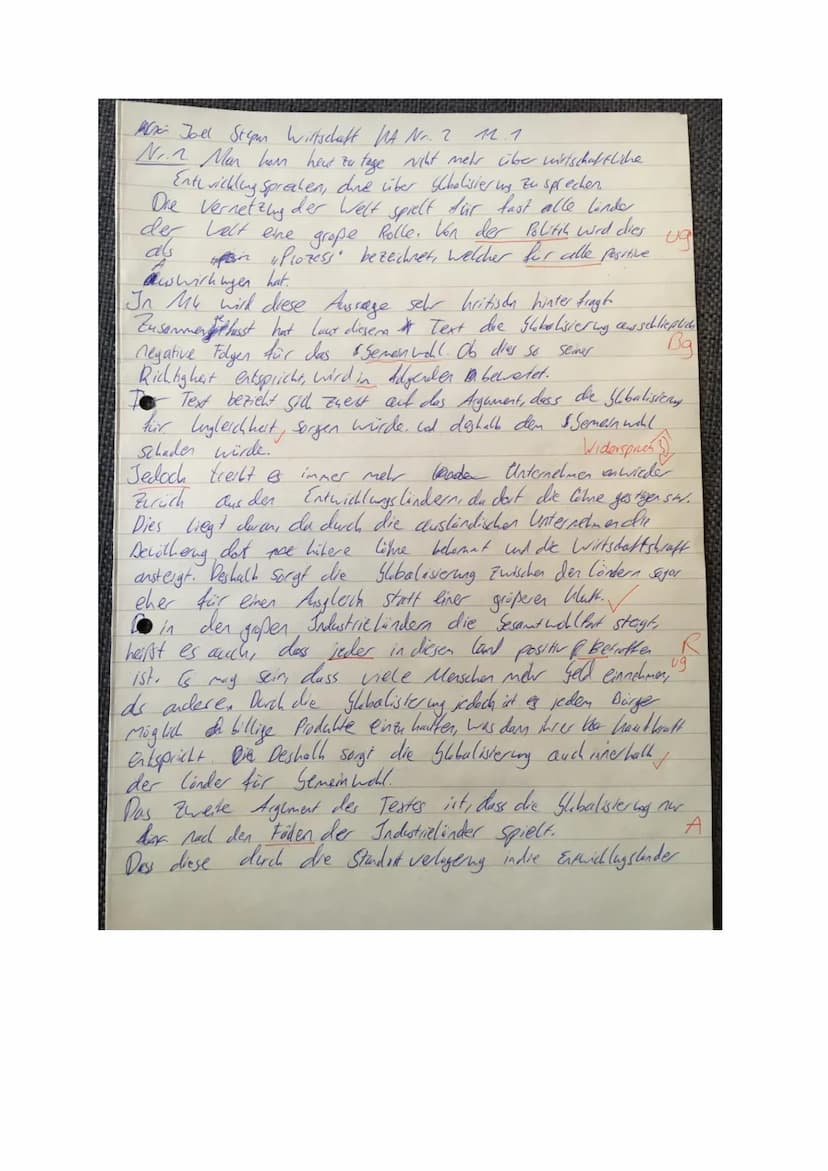 Joel Stepan Wirtschaft KA Nr. 2 11.1
Nr.1 Man kann heut zu tage nicht mehr über wirtschaftliche
Entwicklung sprechen, ohne über Globalisierung zu sprechen
Die Vernetzung der Welt spielt für fast alle Länder
der Welt eine große Rolle. Von der Politik wird dies ug
als "Prozess" bezeichnet, welcher für alle positive
Auswirkungen hat.
In M4 wird diese Aussage sehr kritisch hinterfragt
Zusammengefasst hat laut diesem Text die Globalisierung ausschließlich
negative Folgen für das Gemeinwohl. Ob dies so seiner Bg
Richtigkeit entspricht, wird in folgenden bewertet.
Der Text bezieht sich zuerst auf das Argument, dass die Globalisierung
für Ungleichheit, sorgen würde. und deshalb dem Gemeinwohl
schaden würde. Widerspruch
Jedoch treibt es immer mehr Unternehmen wieder
zurück aus den Entwicklungsländern, da dort die Löhne gestiegen
Dies liegt daran, da durch die ausländischen Unternehmen die
Bevölkerung dort höhere Löhne bekommt und die Wirtschaftskraft
ansteigt. Deshalb sorgt die Globalisierung zwischen den Ländern sogar
eher für einen Ausgleich statt einer größeren Kluft.
in den großen Industrieländern die Gesamtwohlfahrt steigt,
heißt es auch, dass jeder in diesen Land positiv Betroffen R
ist. Es mag sein, dass viele Menschen mehr Geld einnehmen, ug
als anderen Durch die Globalisierung jedoch ist es jedem Bürger
möglich billige Produkte einzukaufen, was dann ihrer Kaufkraft
entspricht. Deshalb sorgt die Globalisierung auch innerhalb
der Länder für Gemeinwohl.
Das zweite Argument des Textes ist, dass die Globalisierung nur
nach den Fäden der Industrieländer spielt. A
Das diese durch die Standortverlagerung in die Entwicklungsländer